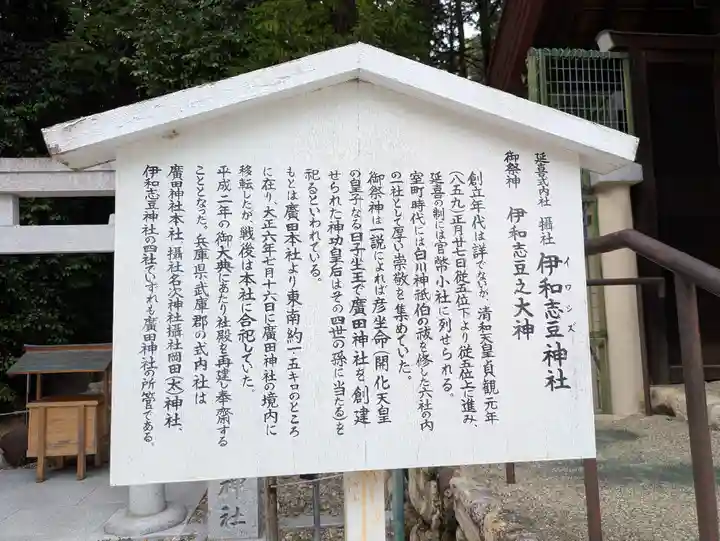 延喜式内社 攝社 伊和志豆神社
イワシズ
御祭神 伊和志豆之大神
創立年代は詳でないが、清和天皇貞観元年
(八五九)正月廿七日従五位下より従五位上に進み、
延喜の制には官幣小社に列せられる。
室町時代には白川神祇伯の祓を修した六社の内
の一社として厚い崇敬を集めていた。
御祭神は一説によれば彦坐命(開化天皇
の皇子なる日子坐王で廣田神社を創建
せられた神功皇后はその四世の孫に当たる)を
祀るといわれている。
もとは廣田本社より東南約一・五キロのところ
に在り、大正六年七月十六日に廣田神社の境内に
移転したが、戦後は本社に合祀していた。
平成二年の御大典にあたり社殿を再建し奉齋する
こととなった。兵庫県武庫郡の式内社は
廣田神社本社、攝社名次神社、攝社岡田(太)神社、
伊和志豆神社の四社でいずれも廣田神社の所管である。
神社